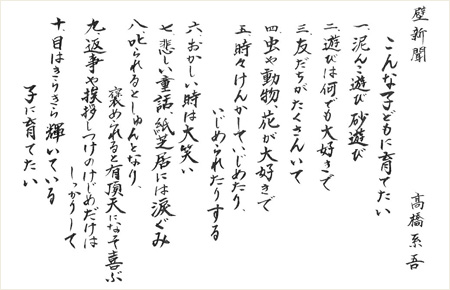 壁新聞
こんな子どもに育てたい
高橋系吾
一、泥んこ遊び砂遊び
二、遊びは何でも大好きで
三、友だちがたくさんいて
四、虫や動物、花が大好きで
五、時々けんかしていじめたり、
いじめられたりする
六、おかしい時は大笑い
七、悲しい童話、紙芝居には涙ぐみ
八、叱られるとしゅんとなり、
褒められると有頂天になって喜ぶ
九、返事や挨拶しつけのけじめだけは
しっかりして
十、目はきらきら輝いている
子に育てたい